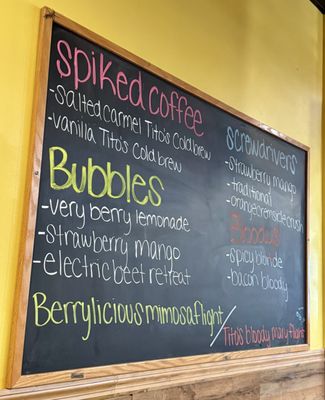 spiked coffee
-salted carmel Tito's Cold brew
-vanilla Tito's Cold brew
Bubbles
-very berry lemonade
-strawberry mango
-electric beet retreat
screwdrivers
-strawberry mango
-traditional
-orange cremsicle crush
Bloodys
-spicy blonde
-bacon bloody
Berrylicious mimosa flight / Tito's bloody mary flight